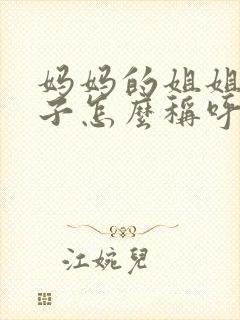 妈妈的姐姐
子怎麼稱呼
江婉兒